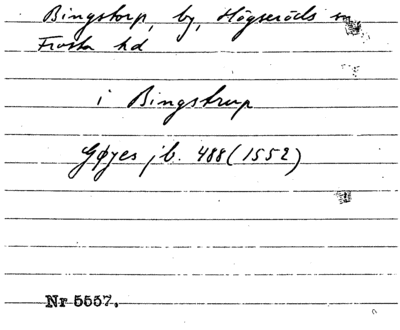 Bingstorp, by, Högseröds sn
Frosta hd
i Bingstrup
Gøyes jb. 488 (1552)
Nr 5557.